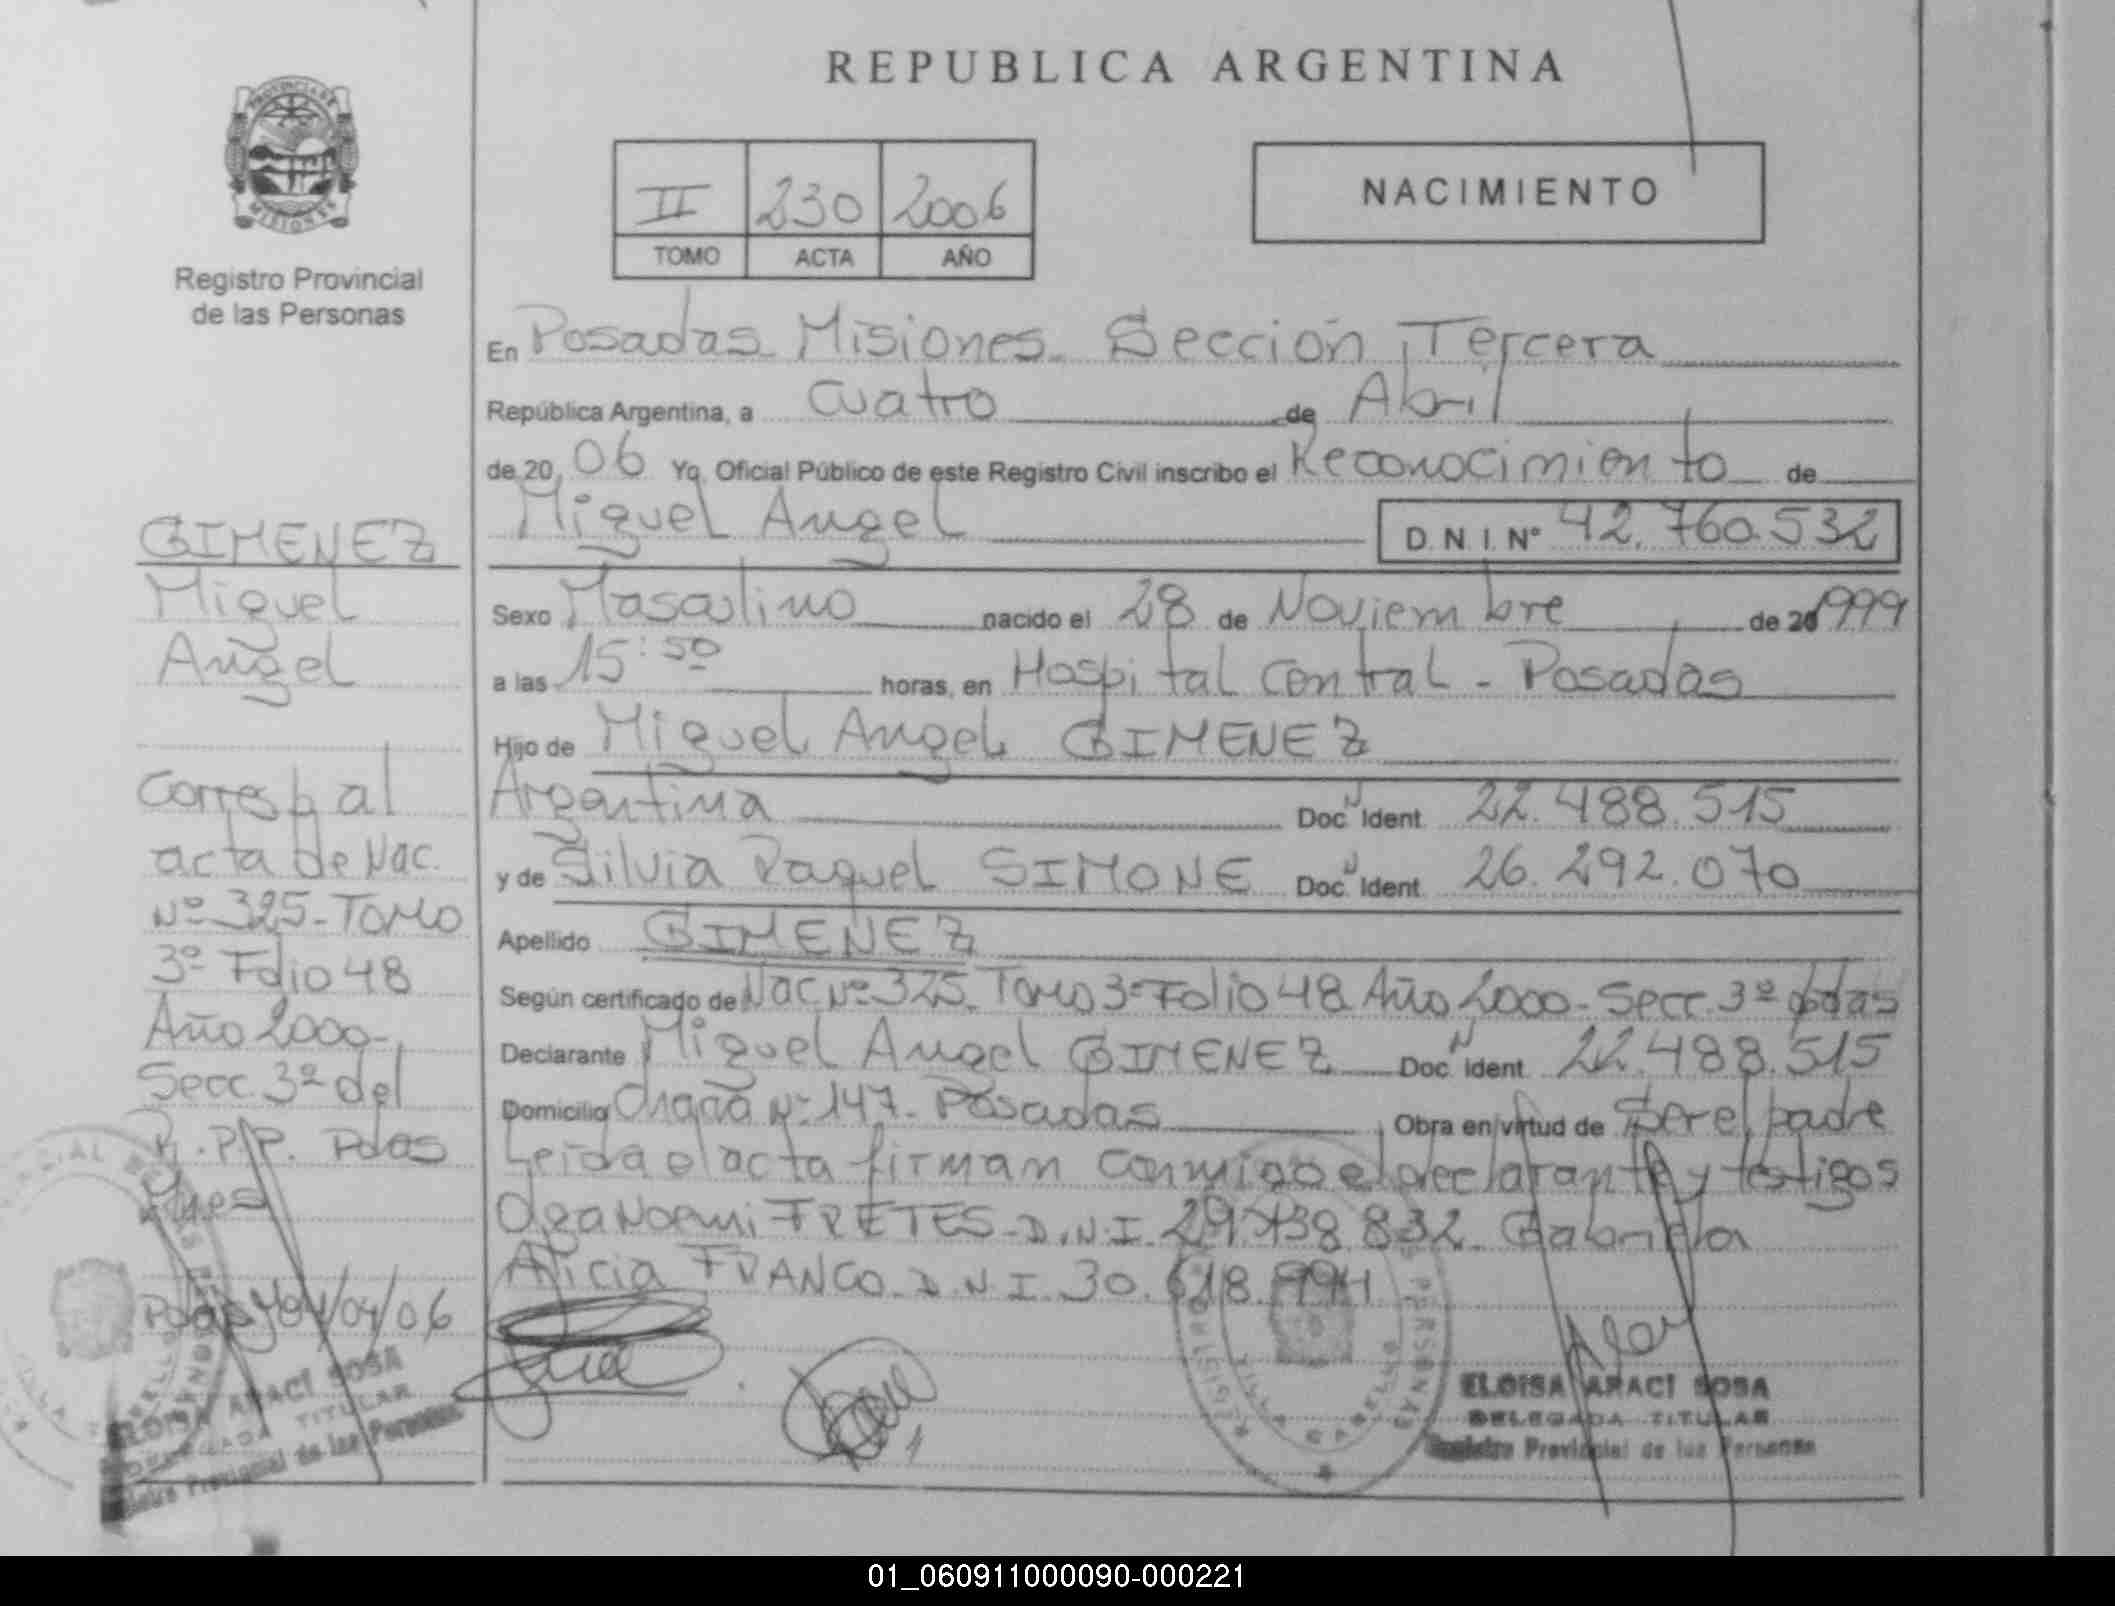 REPUBLICA ARGENTINA
PROVINCIA DE
MISIONES
Registro Provincial
de las Personas
II 230 2006
TOMO ACTA AÑO
NACIMIENTO
En Posadas Misiones Sección Tercera
República Argentina, a cuatro de Abril
de 20 06 Yo, Oficial Público de este Registro Civil inscribo el Reconocimiento de
Miguel Angel D.N.I. Nº 42.760.532
Sexo Masculino nacido el 28 de Noviembre de 1999
a las 15:50 horas, en Hospital Central - Posadas
Hijo de Miguel Angel GIMENEZ
Argentina Doc. Ident. 22.488.515
y de Silvia Raquel SIMONE Doc. Ident. 26.292.070
Apellido GIMENEZ
Según certificado de Nac Nº 325. Tomo 3º Folio 48 Año 2000 - Secc. 3º Pdas
Declarante Miguel Angel GIMENEZ Doc. Ident. 22.488.515
Domicilio Nº 147 - Posadas Obra en virtud de Ser el padre
Leída el acta firman conmigo el declarante y testigos
Olga Noemi FRETES - D.N.I. 832 Gabriela
Alicia FRANCO D.N.I. 30.618.994
GIMENEZ
Miguel
Angel
Corresp al
acta de Nac.
Nº 325 - Tomo
3º Folio 48
Año 2000 -
Secc. 3ª del
R.P.P. Pdas
Mnes
Pdas 04/04/06
ELOISA ARACI SOSA
DELEGADA TITULAR
Registro Provincial de las Personas
ELOISA ARACI SOSA
DELEGADA TITULAR
Registro Provincial de las Personas
01_060911000090-000221